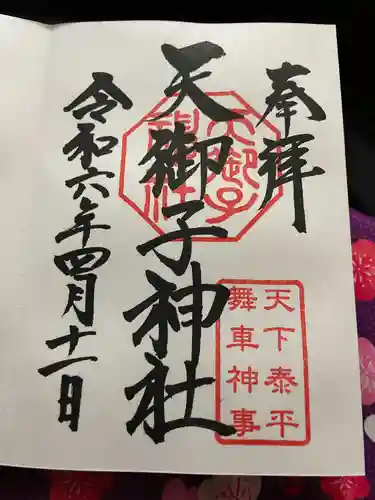 奉拝
天御子神社
天御子神社
天下泰平
舞車神事
令和六年四月十一日